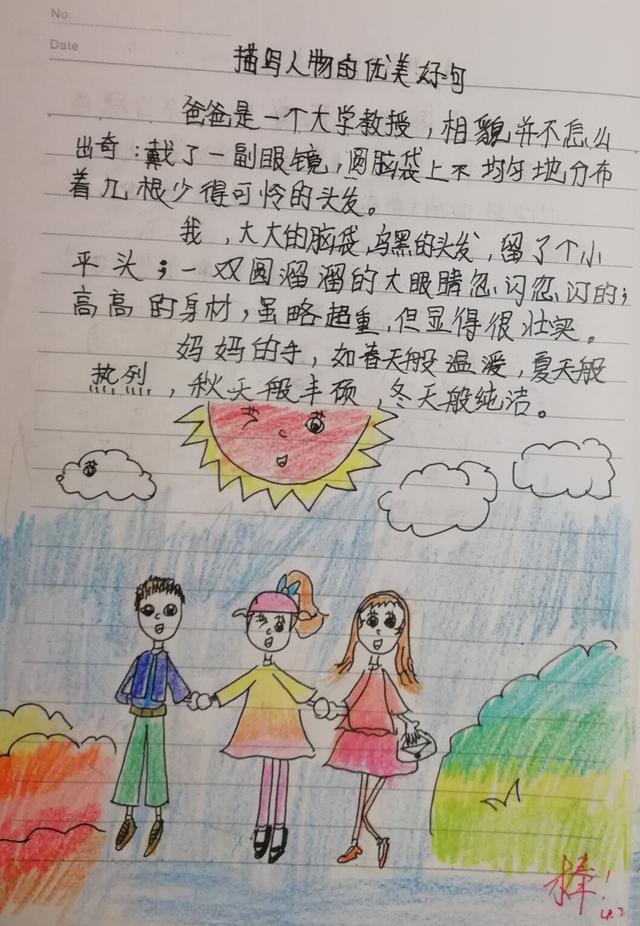 No.
Date
描写人物的优美好句
爸爸是一个大学教授，相貌并不怎么
出奇：戴了一副眼镜，圆脑袋上不均匀地分布
着几根少得可怜的头发。
我，大大的脑袋，乌黑的头发，留了个小
平头；一双圆溜溜的大眼睛忽闪忽闪的；
高高的身材，虽略超重，但显得很壮实。
妈妈的手，如春天般温暖，夏天般
热烈，秋天般丰硕，冬天般纯洁。
棒！